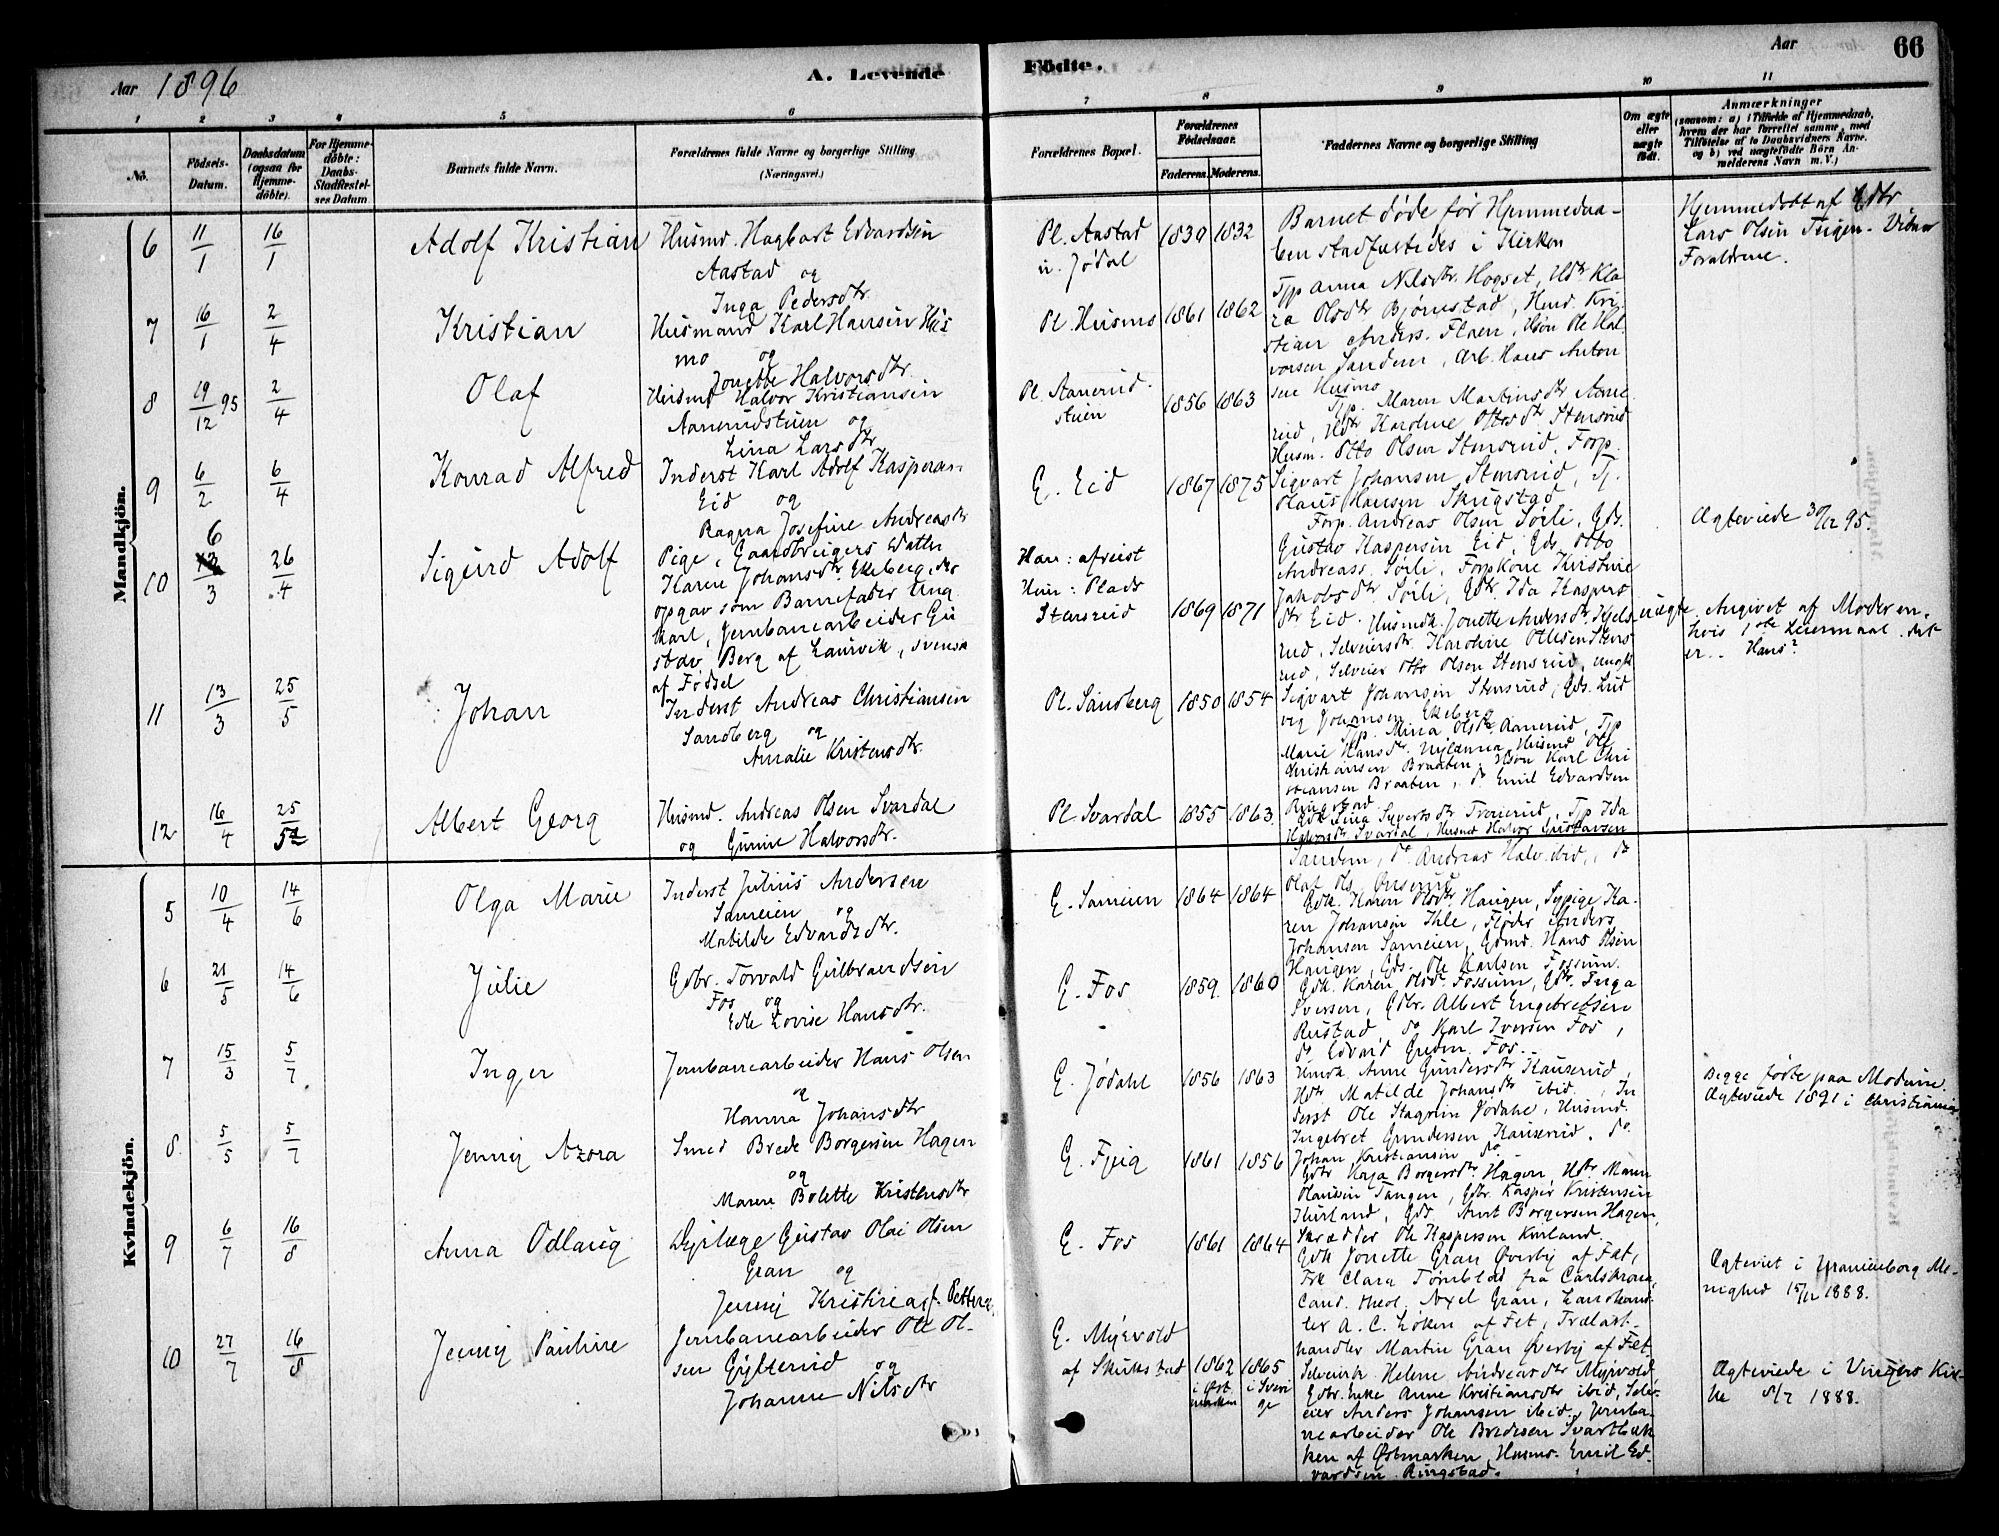 Aar 1896
A. Levende
Födte.
Aar
66
1 2 3 4 5 6 7 8 9 10 11
No.
Födsels-
Datum.
Daabsdatum
(ogsaa for
Hjemme-
döbte).
For Hjemme-
döbte:
Daabs-
Stadfæstel-
ses Datum
Barnets fulde Navn.
Forældrenes fulde Navne og borgerlige Stilling
(Næringsvei.)
Forældrenes Bopæl.
Forældrenes
Födselsaar.
Faderens. Moderens.
Faddernes Navne og borgerlige Stilling
Om ægte
eller
uægte
födt.
Anmærkninger
(saasom: a) i Tilfælde af Hjemmedaab,
hvem der har forrettet samme, med
Tilföielse af to Daabsvidners Navne,
og b) ved uægtefödte Börn An-
melderens Navn m. V.)
Mandkjön.
6 11/1 16/1 Adolf Kristian
Husmd. Hagbart Edvardsen
Aastad og
Inga Pedersdtr.
Pl. Aastad
u. Jødal
1830 1832
Barnet døde før Hjemmedaa-
ben stadfæstedes i Kirken
Hjemmedøbt af Gdbr
Lars Olsen Vidner
Forældrene.
7 16/1 2/4 Kristian
Husmand Karl Hansen Hus
mo og
Jonette Halvorsdtr.
Pl. Husmo 1861 1862
Tjp Anna Nilsdtr. Hogset, Udtr Kla
ra Olsdtr Bjørnstad, Husmd. Kri-
stian Anders. Flaen, Uson Ole Hal-
vorsen Sandem, Arb. Hans Anton
sen Husmo
8 19/12 95 2/4 Olaf
Husmd Halvor Kristiansen
Aanerudstuen og
Lina Larsdtr.
Pl. Aanerud
stuen
1856 1863
Tjp. Maren Martinsdtr Aane
rud, Udtr Karoline Ottosdtr Stensrud
Husm. Otto Olsen Stensrud, Forp.
Sigvart Johansen Stensrud, Tj.
Olaus Hansen Skugstad
9 6/2 6/4 Konrad Alfred
Inderst Karl Adolf Kaspersen
Eid og
Ragna Josefine Andreasdtr
G. Eid 1867 1875
Forp. Andreas Olsen Sørli, Gds.
Gustav Kaspersen Eid, Gds. Otto
Andreass. Sørli, Forpkone Kirstine
Jakobsdtr Sørli, Gdtr. Ida Kaspers
dtr Eid.
Ægteviede 30/12 95.
10 6/3 26/4 Sigurd Adolf
Pige, Gaardbrugers Datter
Karen Johansdtr. Ekeberg, der
opgav som Barnefader Ung
karl, Jernbanearbeider Gu
stav Berg af Laurvik, svensk
af Fødsel
Han: afreist
Hun: Plads
Stensrud
1869 1871
Husmdk. Jonette Andersdtr. Kjels-
rud, Selveiersdtr. Karoline Ottesen Stens
rud, Selveier Otto Olsen Stensrud, Ungk.
Sigvart Johansen Stensrud, Gds. Lud
vig Johansen Ekeberg
uægte
Angivet af Moderen.
hvis 1ste Leiermaal det
er. Hans?
11 13/3 25/5 Johan
Inderst Andreas Christiansen
Sandberg og
Amalie Kristensdtr.
Pl. Sandberg 1850 1854
Tjp. Mina Olsdtr. Aanerud, Tjp
Marie Hansdtr. Nylænna Husmd Ole
Kristiansen Braaten, Uson Karl Chri
stiansen Braaten, do Emil Edvardsen
Ringstad
12 16/4 25/5 Albert Georg
Husmd. Andreas Olsen Svardal
og Gunine Halvorsdtr.
Pl. Svardal 1855 1863
Gdk Lina Syvertsdtr Tronerud, Tjp Ida
Halvorsdtr Svardal, Husmd Halvor Gustavsen
Sandem, do. Andreas Halv. ibid., do
Olaf Ols. Onserud
Kvindekjön.
5 10/4 14/6 Olga Marie
Inderst Julius Andersen
Sameien og
Matilde Edvardsdtr.
G. Sameien 1864 1864
Gdk. Karen Olsdtr. Haugen, Sypige Ka-
ren Johansen Ihle, Fløder Anders
Johansen Sameien, Gdmd. Hans Olsen
Haugen, Gds. Ole Karlsen Fossum.
6 21/5 14/6 Julie
Gdbr. Torvald Gulbrandsen
Fos og
Edle Lovise Hansdtr.
G. Fos 1859. 1860
Gdk. Karen Olsdtr Fossum, Gdtr. Inga
Iversen, Gdbr. Albert Engebretsen
Rustad, do Karl Iversen Fos,
do Edvard Gudm. Fos.
7 15/3 5/7 Inger
Jernbanearbeider Hans Olsen
og
Hanna Johansdtr
G. Jødahl 1856 1863
Husmdk. Anne Gundersdtr Kauserud,
Udtr Matilde Johansdtr ibid, In
derst Ole Hagron Jødahl, Husmd.
Ingebret Gundersen Kauserud. do
Johan Kristiansen do
Begge fødte paa Modum.
Ægteviede 1891 i Christiania
8 5/5 5/7 Jenny Azora
Smed Brede Borgersen Hagen
og
Maren Bolette Kristensdtr
G. Fjeig 1861 1856
Gdtr Kaja Borgersdtr. Hagen, Udtr. Maren
Olaussen Tangen, Gdbr. Kasper Kristensen
Kurland, Gds. Amt Borgersen Hagen,
Skrædder Ole Kaspersen Kurland.
9 6/7 16/8 Anna Odlaug
Dyrlæge Gustav Olai Olsen
Gran og
Jenny Kristine f. Petters
G. Fos 1861 1864
Gdk Jonette Gran Øverby af Fæt,
Frk Clara Tømblad fra Carlskrona,
Cand. theol. Axel Gran, Landhand-
ler A. C. Løken af Fet, Trælast-
handler Martin Gran Øverby af Fet
Ægteviet i Uranienborg Me-
nighed 15/12 1888.
10 27/7 16/8 Jenny Pauline
Jernbanearbeider Ole Ol-
sen Gylterud og
Johanne Nilsdtr
G. Myrvold
af Skulkstad
1862
i Øst
marken
1865
i Sveri
ge
Selveierk. Helene Andreasdtr Myrvold,
Gdbr. Enke Anne Kristiansdtr ibid, Selv-
eier Anders Johansen ibid, Jernba-
nearbeider Ole Bredesen Svartbæk
ken af Østmarken, Husmd. Emil Ed
vardsen Ringstad.
Ægteviede i Vingers Kir-
ke 8/7 1888.